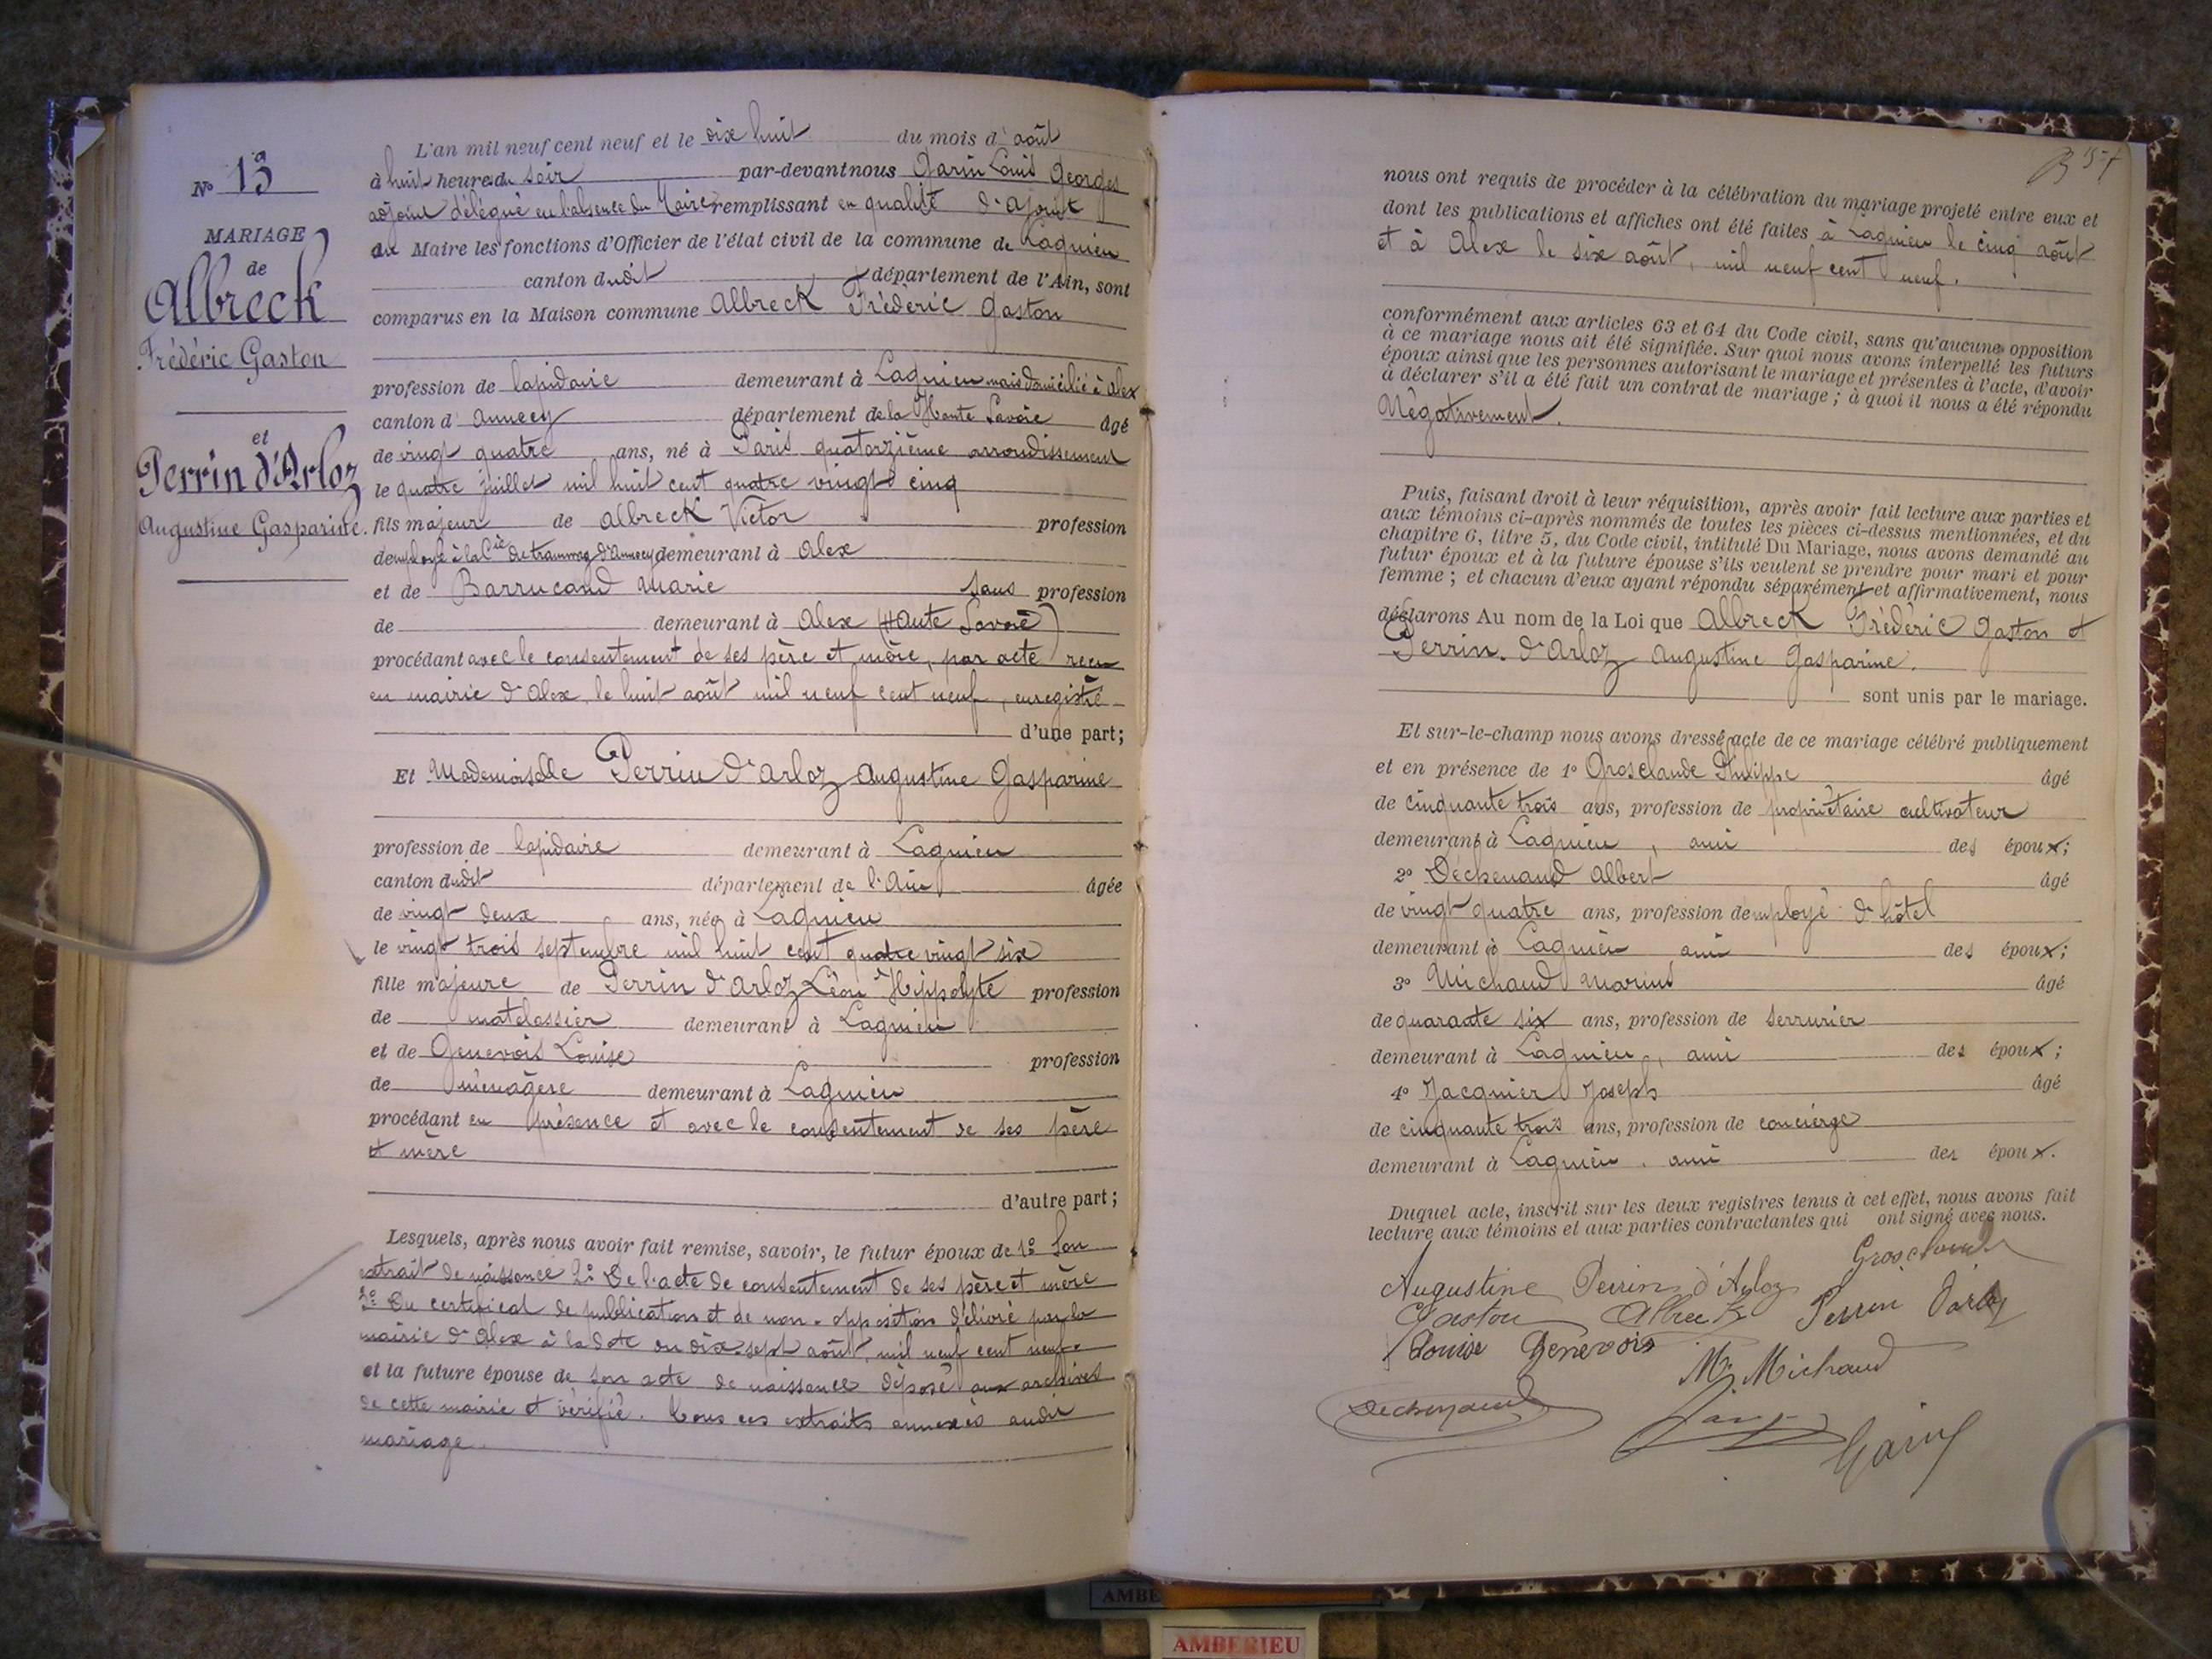 N° 13
MARIAGE
de
Albreck
Frédéric Gaston
et
Perrin d'Arloz
Augustine Gasparine.
L'an mil neuf cent neuf et le dix huit du mois d'août
à huit heures du soir par-devant nous Garin Louis Georges
adjoint délégué en l'absence du Maire remplissant en qualité d'ajoint
du Maire les fonctions d'Officier de l'état civil de la commune de Lagnieu
canton dudit département de l'Ain, sont
comparus en la Maison commune Albreck Frédéric Gaston
profession de lapidaire demeurant à Lagnieu mais domicilié à Alex
canton d'Annecy département de la Haute Savoie âgé
de vingt quatre ans, né à Paris quatorzième arrondissement
le quatre juillet mil huit cent quatre vingt cinq
fils majeur de Albreck Victor profession
d'employé à la Cie du tramway d'Annecy demeurant à Alex
et de Barrucand Marie sans profession
de demeurant à Alex (Haute Savoie)
procédant avec le consentement de ses père et mère, par acte reçu
en mairie d'Alex, le huit août mil neuf cent neuf, enregistré
d'une part;
Et Mademoiselle Perrin d'Arloz Augustine Gasparine
profession de lapidaire demeurant à Lagnieu
canton dudit département de l'Ain âgée
de vingt deux ans, née à Lagnieu
le vingt trois septembre mil huit cent quatre vingt six
fille majeure de Perrin d'Arloz Léon Hippolyte profession
de matelassier demeurant à Lagnieu
et de Genevois Louise profession
de ménagère demeurant à Lagnieu
procédant en présence et avec le consentement de ses père
et mère
d'autre part;
Lesquels, après nous avoir fait remise, savoir, le futur époux de 1° Son
extrait de naissance 2° De l'acte de consentement de ses père et mère
3° Du certificat de publication et de non-opposition délivré par la
mairie d'Alex à la date du dix-sept août, mil neuf cent neuf
et la future épouse de son acte de naissance déposé aux archives
de cette mairie et vérifié. Tous ces extraits annexés audit
mariage.
nous ont requis de procéder à la célébration du mariage projeté entre eux et
dont les publications et affiches ont été faites à Lagnieu le cinq août
et à Alex le six août, mil neuf cent neuf.
conformément aux articles 63 et 64 du Code civil, sans qu'aucune opposition
à ce mariage nous ait été signifiée. Sur quoi nous avons interpellé les futurs
époux ainsi que les personnes autorisant le mariage et présentes à l'acte, d'avoir
à déclarer s'il a été fait un contrat de mariage; à quoi il nous a été répondu
Négativement.
Puis, faisant droit à leur réquisition, après avoir fait lecture aux parties et
aux témoins ci-après nommés de toutes les pièces ci-dessus mentionnées, et du
chapitre 6, titre 5, du Code civil, intitulé Du Mariage, nous avons demandé au
futur époux et à la future épouse s'ils veulent se prendre pour mari et pour
femme; et chacun d'eux ayant répondu séparément et affirmativement, nous
déclarons Au nom de la Loi que Albreck Frédéric Gaston et
Perrin d'Arloz Augustine Gasparine.
sont unis par le mariage.
Et sur-le-champ nous avons dressé acte de ce mariage célébré publiquement
et en présence de 1° Grosclaude Philippe âgé
de cinquante trois ans, profession de propriétaire cultivateur
demeurant à Lagnieu, ami des époux;
2° Déchenaud Albert âgé
de vingt quatre ans, profession d'employé d'hôtel
demeurant à Lagnieu ami des époux;
3° Michaud Marius âgé
de quarante six ans, profession de serrurier
demeurant à Lagnieu, ami des époux;
4° Jacquier Joseph âgé
de cinquante trois ans, profession de concierge
demeurant à Lagnieu, ami des époux.
Duquel acte, inscrit sur les deux registres tenus à cet effet, nous avons fait
lecture aux témoins et aux parties contractantes qui ont signé avec nous.
Grosclaude
Augustine Perrin d'Arloz
Gaston Albreck Perrin Darloz
Louise Genevois
M. Michaud
Dechenaud
Garin
AMBERIEU